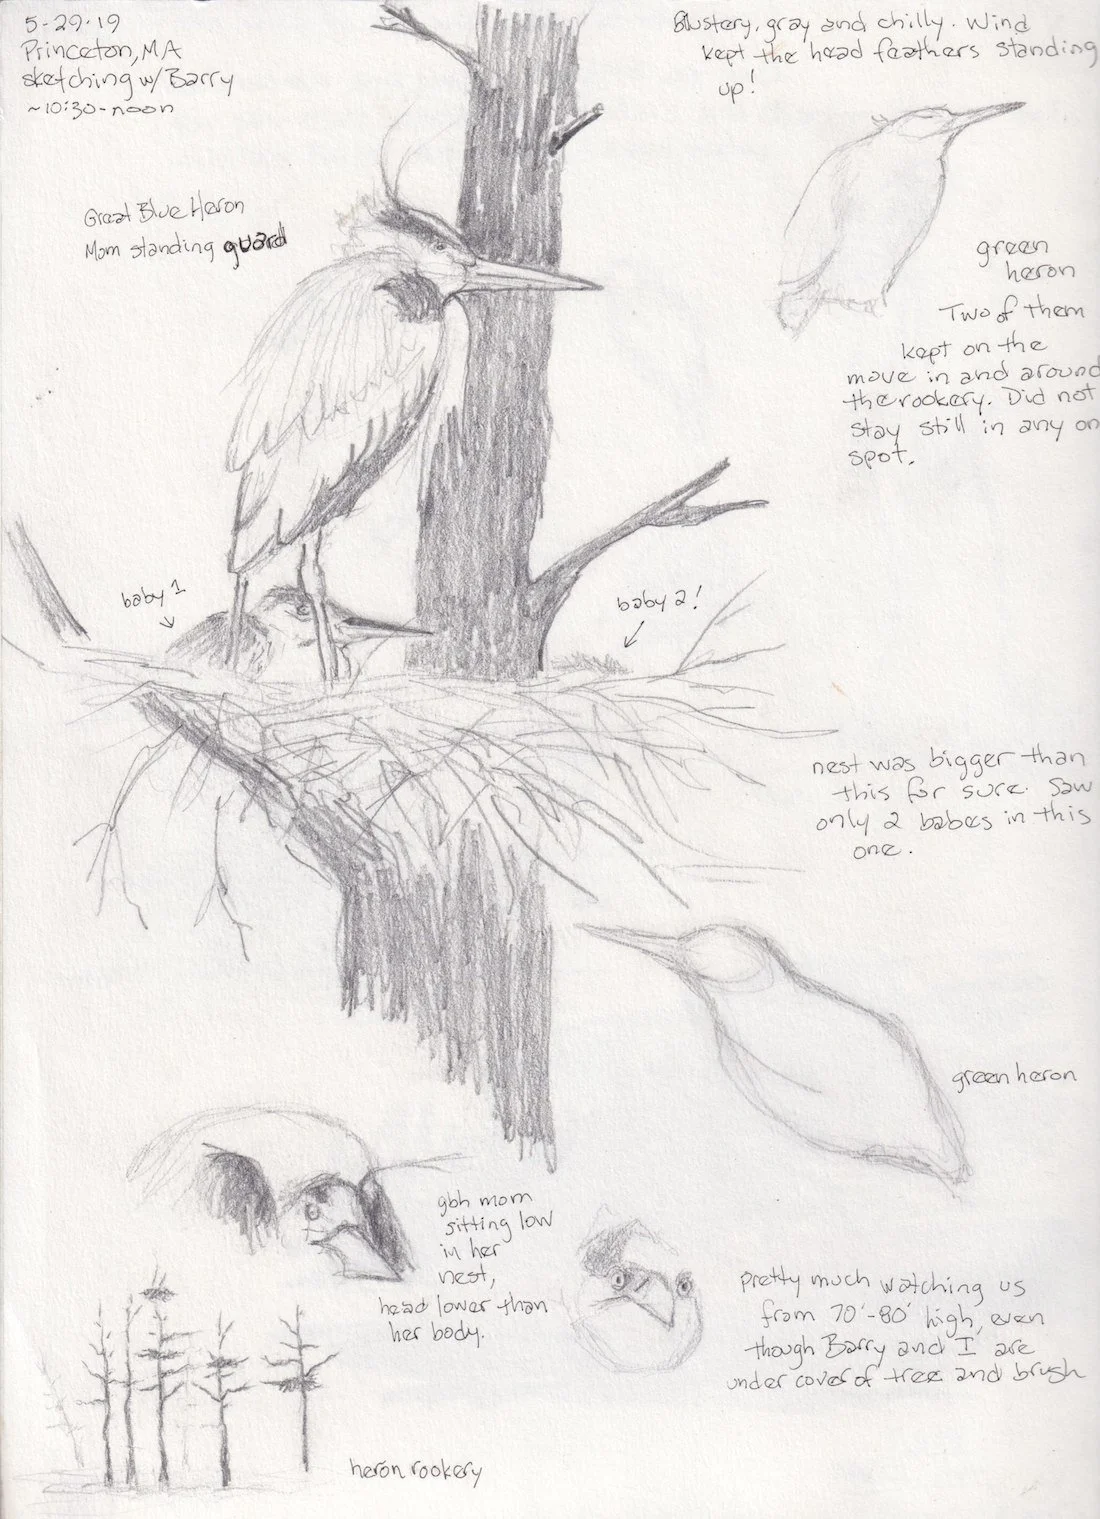 5-29-19
Princeton, MA
sketching w/ Barry
~10:30-noon
Blustery, gray and chilly. Wind
kept the head feathers standing
up!
Great Blue Heron
Mom standing guard
green
heron
Two of them
kept on the
move in and around
the rookery. Did not
stay still in any on
spot.
baby 1
baby 2!
nest was bigger than
this for sure. Saw
only 2 babes in this
one.
green heron
gbh mom
sitting low
in her
nest,
head lower than
her body.
pretty much watching us
from 70'-80' high, even
though Barry and I are
under cover of tree and brush
heron rookery